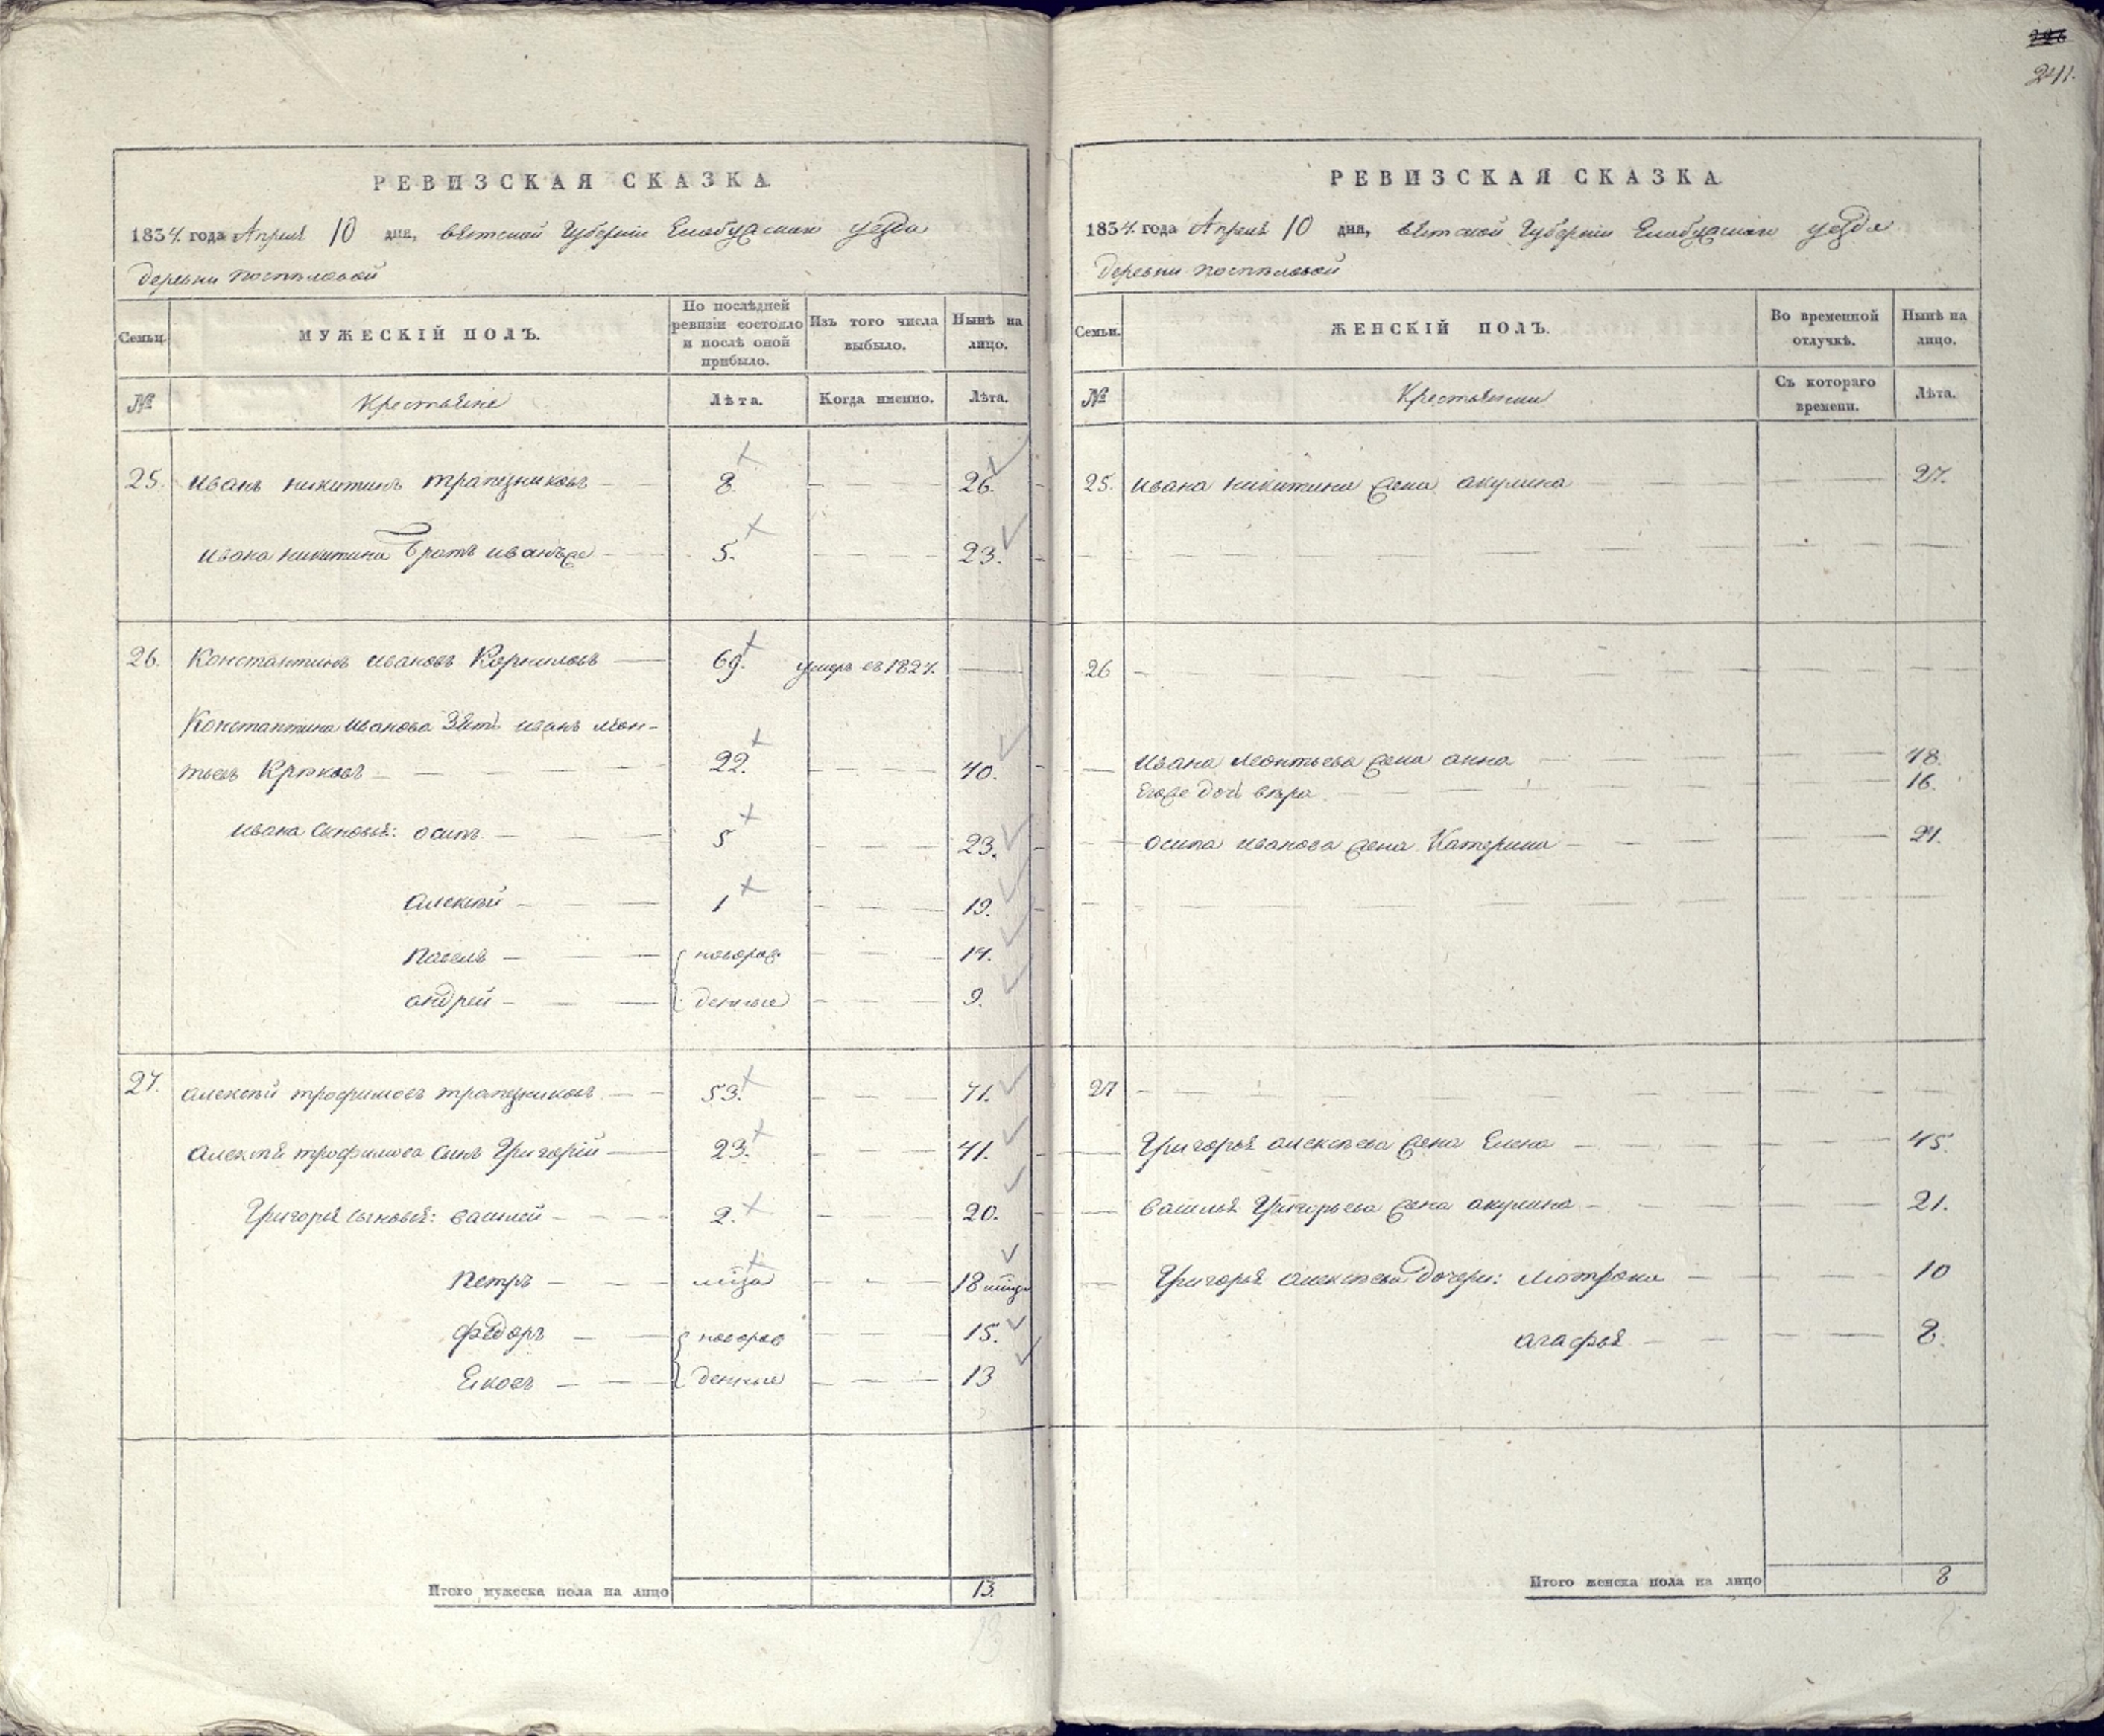 241.
РЕВИЗСКАЯ СКАЗКА
1834. года Апреля 10 дня, вятской Губерніи Елабужскаго уезда
деревни поспеловой
Семьи. МУЖЕСКІЙ ПОЛЪ. По послѣдней ревизіи состояло и послѣ оной прибыло. Изъ того числа выбыло. Нынѣ на лицо.
№ Крестьяне Лѣта. Когда именно. Лѣта.
25. иванъ никитинъ трапезниковъ 8. 26.
ивана никитина братъ иванъже 5. 23.
26. Константинъ ивановъ Корниловъ 69. умеръ въ 1827.
Константина иванова зять иванъ леон-
тьевъ Крюковъ 22. 40.
ивана сыновья: осипъ 5 23.
алексѣй 1 19.
павелъ новорож 14.
андрей денные 9.
27. алексѣй трофимовъ трапезниковъ 53. 71.
алексѣя трофимова сынъ Григорій 23. 41.
Григорья сыновья: василей 2. 20.
петръ 18
федоръ новорож 15.
Яковъ денные 13
Итого мужеска пола на лицо 13.
РЕВИЗСКАЯ СКАЗКА
1834. года Апреля 10 дня, вятской Губерніи Елабужскаго уезда
деревни поспеловой
Семьи. ЖЕНСКІЙ ПОЛЪ. Во временной отлучкѣ. Нынѣ на лицо.
№ Крестьянки Съ котораго времени. Лѣта.
25. ивана никитина жена акулина 27.
26
ивана леонтьева жена анна 48.
Егоже дочь вѣра 16.
осипа иванова жена Катерина 21.
27
Григорья алексѣева жена Елена 45.
василья Григорьева жена акулина 21.
Григорья алексѣева дочери: матрона 10
агафья 8.
Итого женска пола на лицо 8